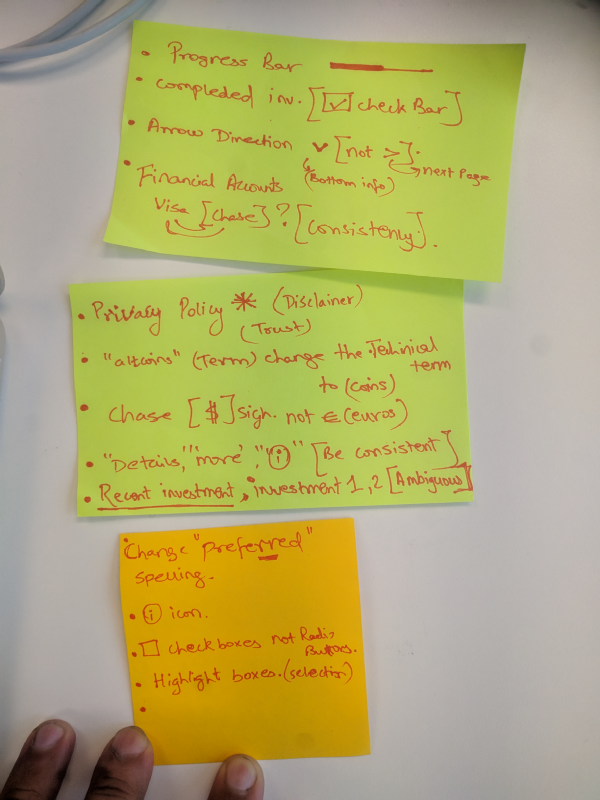 • Progress Bar
• compleded inv. [☑ check Bar]
• Arrow Direction ∨ [not >].
(Bottom info) → next Page
• Financial Accounts
Visa [Chase] ? [Consistency].
• Privacy Policy * (Disclaimer)
(Trust)
• "altcoins" (Term) change the Technical
term
to (coins)
• Chase [$] sign. not € (euros)
• "Details," "more", "ⓘ" [Be consistent]
• Recent investment, investment 1, 2 [Ambiguous]
• Change "preferred"
spelling.
• ⓘ icon.
• ☐ checkboxes not Radio
Buttons.
• Highlight boxes. (selection)
•